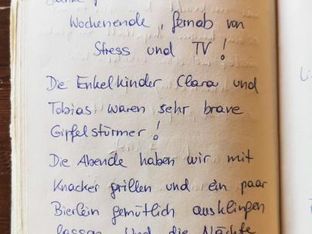 Wochenende, fernab von
Stress und TV!
Die Enkelkinder Clara und
Tobias waren sehr brave
Gipfelstürmer!
Die Abende haben wir mit
Knacker grillen und ein paar
Bierlein gemütlich ausklingen
lassen. Und die Nächte